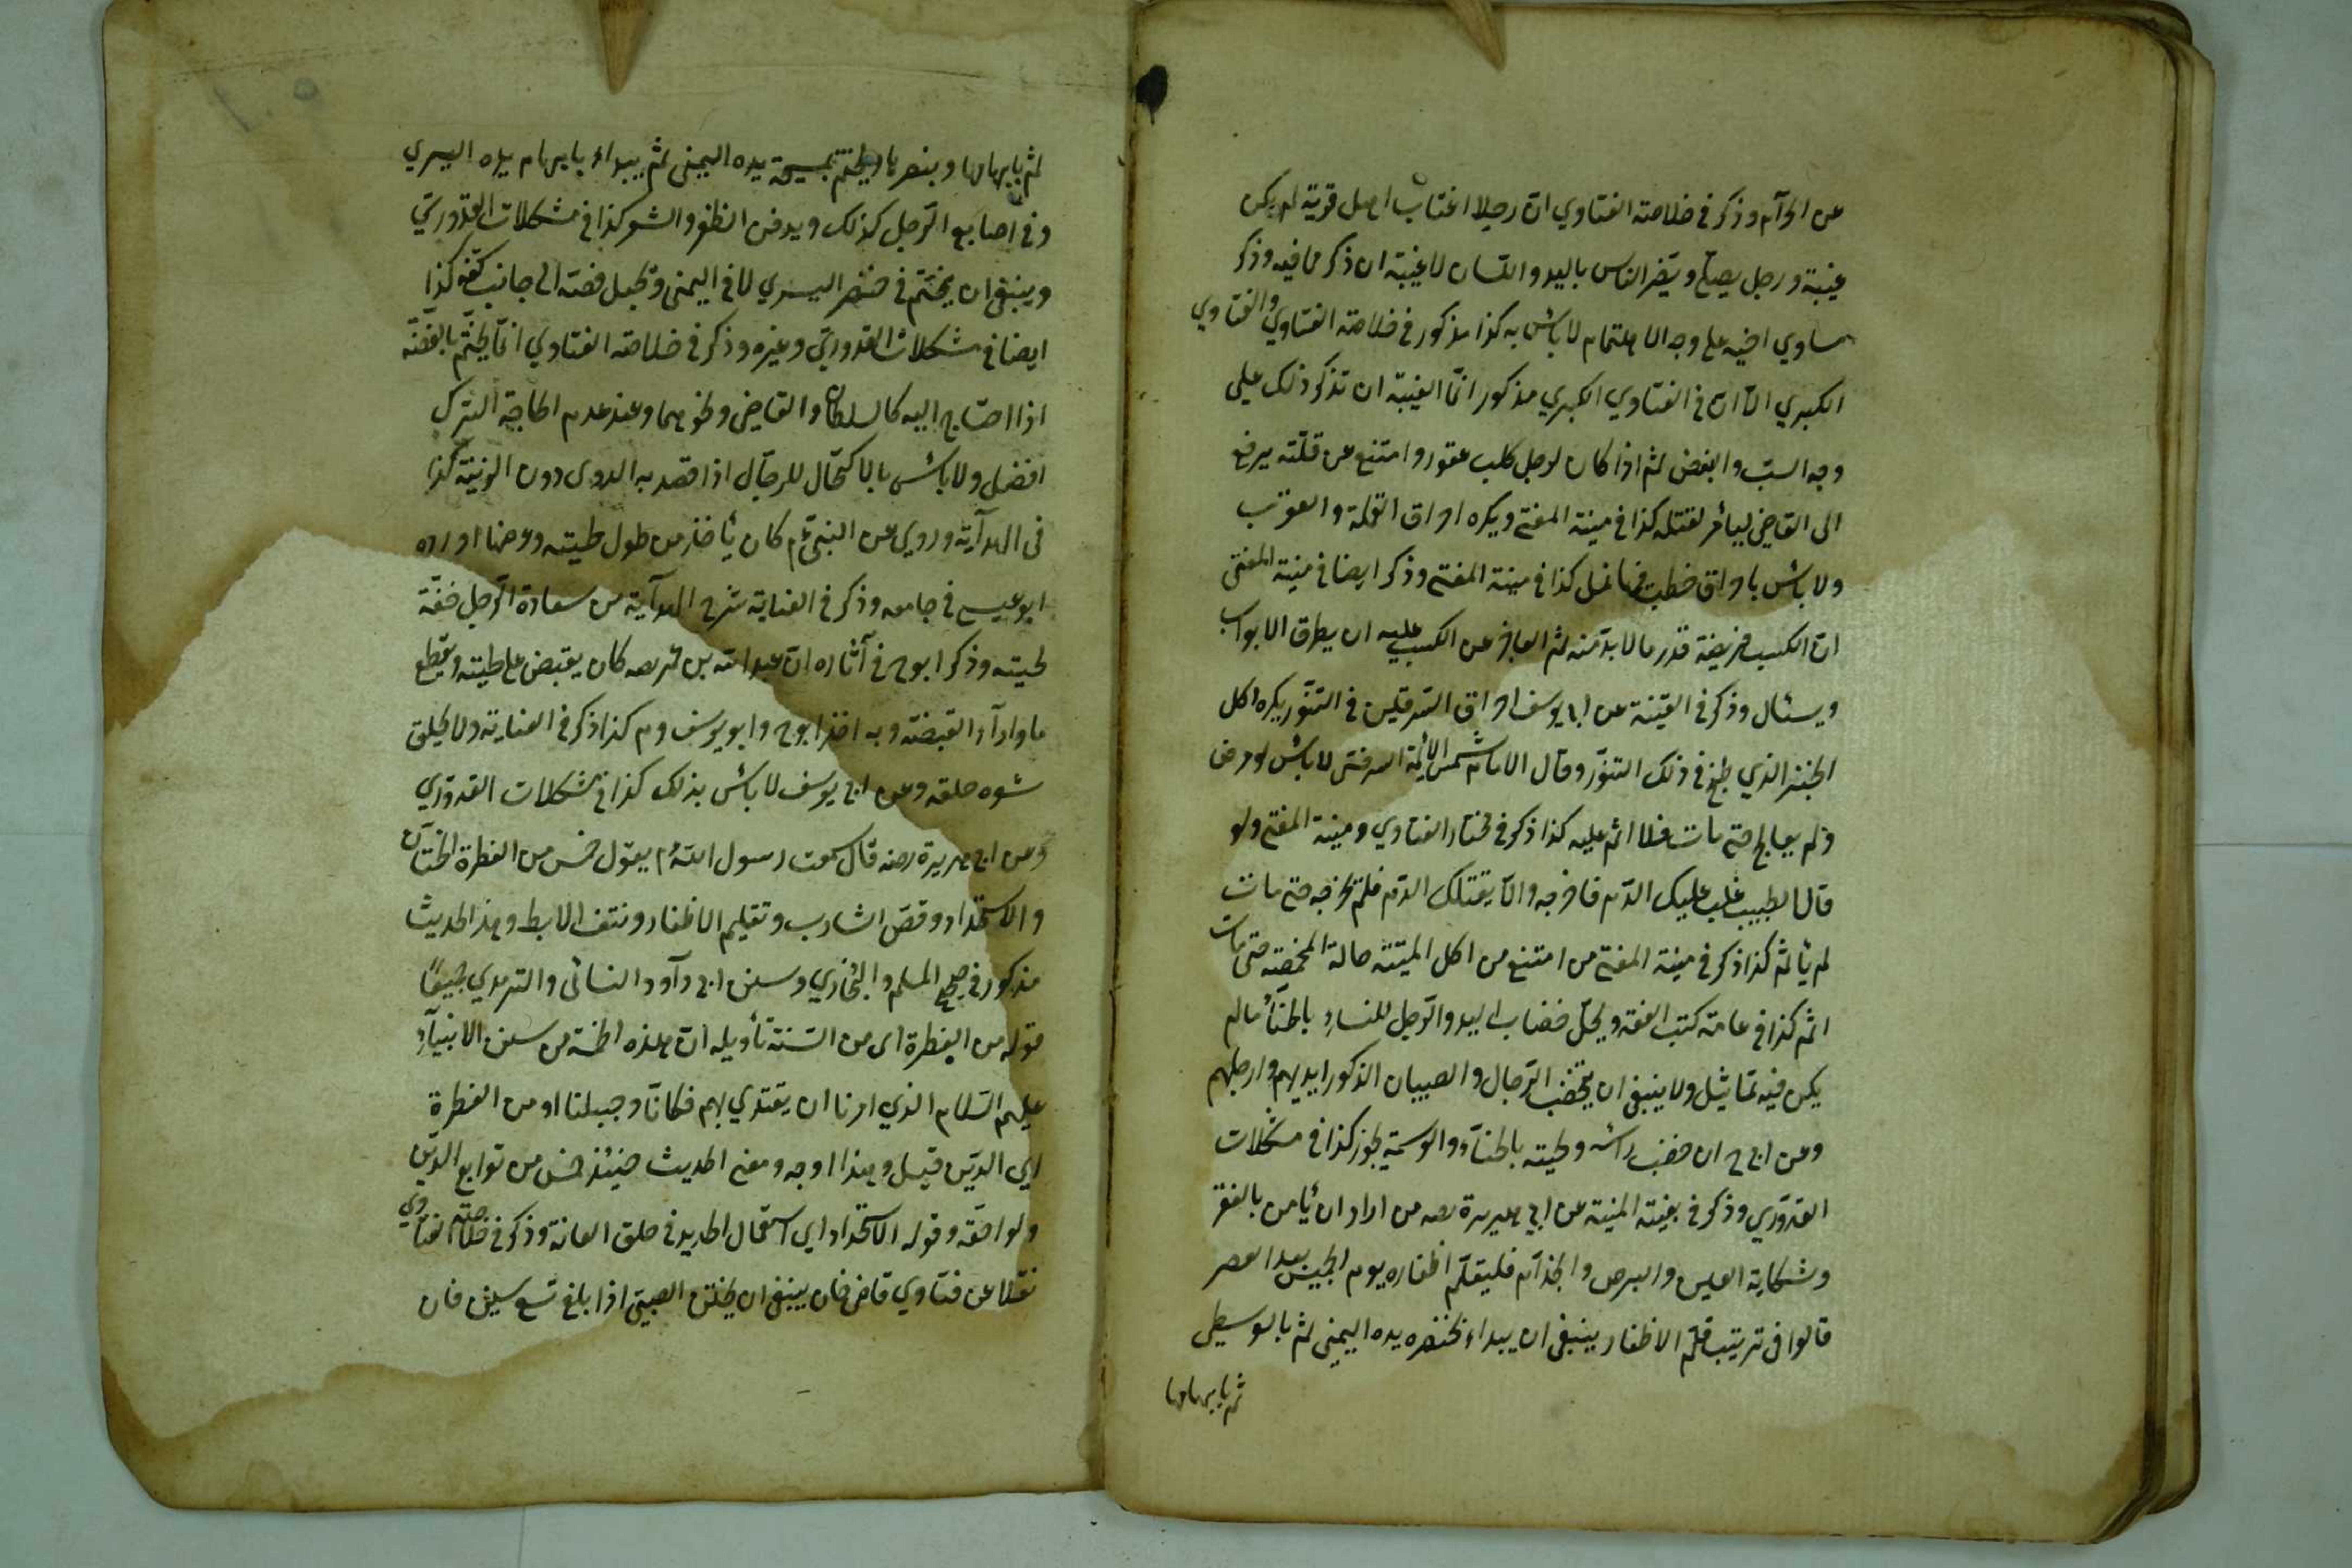 عن الحرآم وذكر في خلاصة الفتاوي انّ رجلا اغتاب اهل قرية لم يكن
غيبة ورجل يصلّي ويضر الناس باليد واللسان لا غيبة ان ذكر ما فيه وذكر
مساوي اخيه على وجه الاهتمام لا بأس به كذا مذكور في خلاصة الفتاوي والفتاوي
الكبري الّا انّ في الفتاوي الكبري مذكور انّما الغيبة ان تذكر ذلك على
وجه السبّ والبغض ثم اذا كان لرجل كلب عقور وامتنع عن قتله يرفع
الى القاضي ليأمر لقتله كذا في منية المفتي ويكره احراق القملة والعقرب
ولا بأس باحراق حطب فيها نمل كذا في منية المفتي وذكر ايضا في منية المفتى
انّ الكسب فريضة قدر ما لا بدّ منه ثم العاجز عن الكسب عليه ان يطرق الابواب
ويسئال وذكر في القنية عن ابي يوسف احراق السّرقين في التنّور يكره اكل
الخبز الذي طبخ في ذلك التنوّر وقال الامام شمس الائمّة السرخسي لا بأس ولو مرض
ولم يعالج حتى مات فلا اثم عليه كذا ذكر في مختار الفتاوي ومنية المفتي ولو
قال الطبيب غلب عليك الدّم فاخرجه والّا يقتلك الدّم فلم يخرجه حتى مات
لم يأثم كذا ذكر في منية المفتي من امتنع من اكل الميتة حالة المخمصة حتى مات
اثم كذا في عامة كتب الفقه ويحلّ خضاب اليد والرّجل للنساء بالحنّاء ما لم
يكن فيه تماثيل ولا ينبغي ان يخضب الرّجال والصبيان الذكور ايديهم وارجلهم
وعن ابي ح ان خضب رأسه ولحيته بالحنآء والوسمة يجوز كذا في مشكلات
القدوري وذكر في بغية المنية عن ابي هريرة رضه من اراد ان يأمن بالفقر
وشكاية العين والبرص والجذآم فليقلّم اظفاره يوم الخميس بعد العصر
قالوا في ترتيب قلم الاظفار ينبغي ان يبداء بخنصره يده اليمنى ثم بالوسطى
ثم بابهامها
ثم بابهامها وبنصرها ويختم بمسبحة يده اليمنى ثم يبداء بابهام يده اليسري
وفي اصابع الرّجل كذلك ويدفن الظفر والشعر كذا في مشكلات القدوري
وينبغي ان يختم في خنصر اليسري لا في اليمنى ويجعل فصّه الى جانب كفّه كذا
ايضا في مشكلات القدوري وغيره وذكر في خلاصة الفتاوي انّما يختّم بالفضّة
اذا احتاج اليه كالسلطان والقاضي ونحوهما وعند عدم الحاجة الترك
افضل ولا بأس بالاكتحال للرجال اذا قصد به الدوى دون الزينة كذا
في الهدآية وروي عن النبيّ ءم كان يأخذ من طول لحيته وعرضها اورده
ابو عيسى في جامعه وذكر في العناية شرح الهدآية من سعادة الرّجل خفّة
لحيته وذكر ابو ح في آثاره انّ عبد الله بن عمر رضه كان يقبض على لحيته ويقطع
ما ورآء القبضة وبه اخذ ابو ح وابو يوسف وم كذا ذكر في العناية ولا يحلق
شعر حلقه وعن ابي يوسف لا بأس بذلك كذا في مشكلات القدوري
وعن ابي هريرة رضه قال سمعت رسول الله ءم يقول خمس من الفطرة الختان
والاستحداد وقصّ الشارب وتقليم الاظفار ونتف الابط وهذا الحديث
مذكور في صحيح المسلم والبخاري وسنن ابي دآود النسائى والترمدي جميعًا
قوله من الفطرة اى من السّنة تأويله انّ هذه الخمسة من سنن الانبيآء
عليهم السّلام الذي امرنا ان يقتدي بهم فكانّا وجبلنا او من الفطرة
اي الدّين قيل وهذا اوجه ومعنى الحديث حينئذ خمس من توابع الدّين
ولواحقه وقوله الاستحداد اي استعمال الحديد في حلق العانة وذكر في خلاصة الفتاوي
نقلا عن فتاوي قاضي خان ينبغي ان يختن الصبيّ اذا بلغ تسع سنين فان